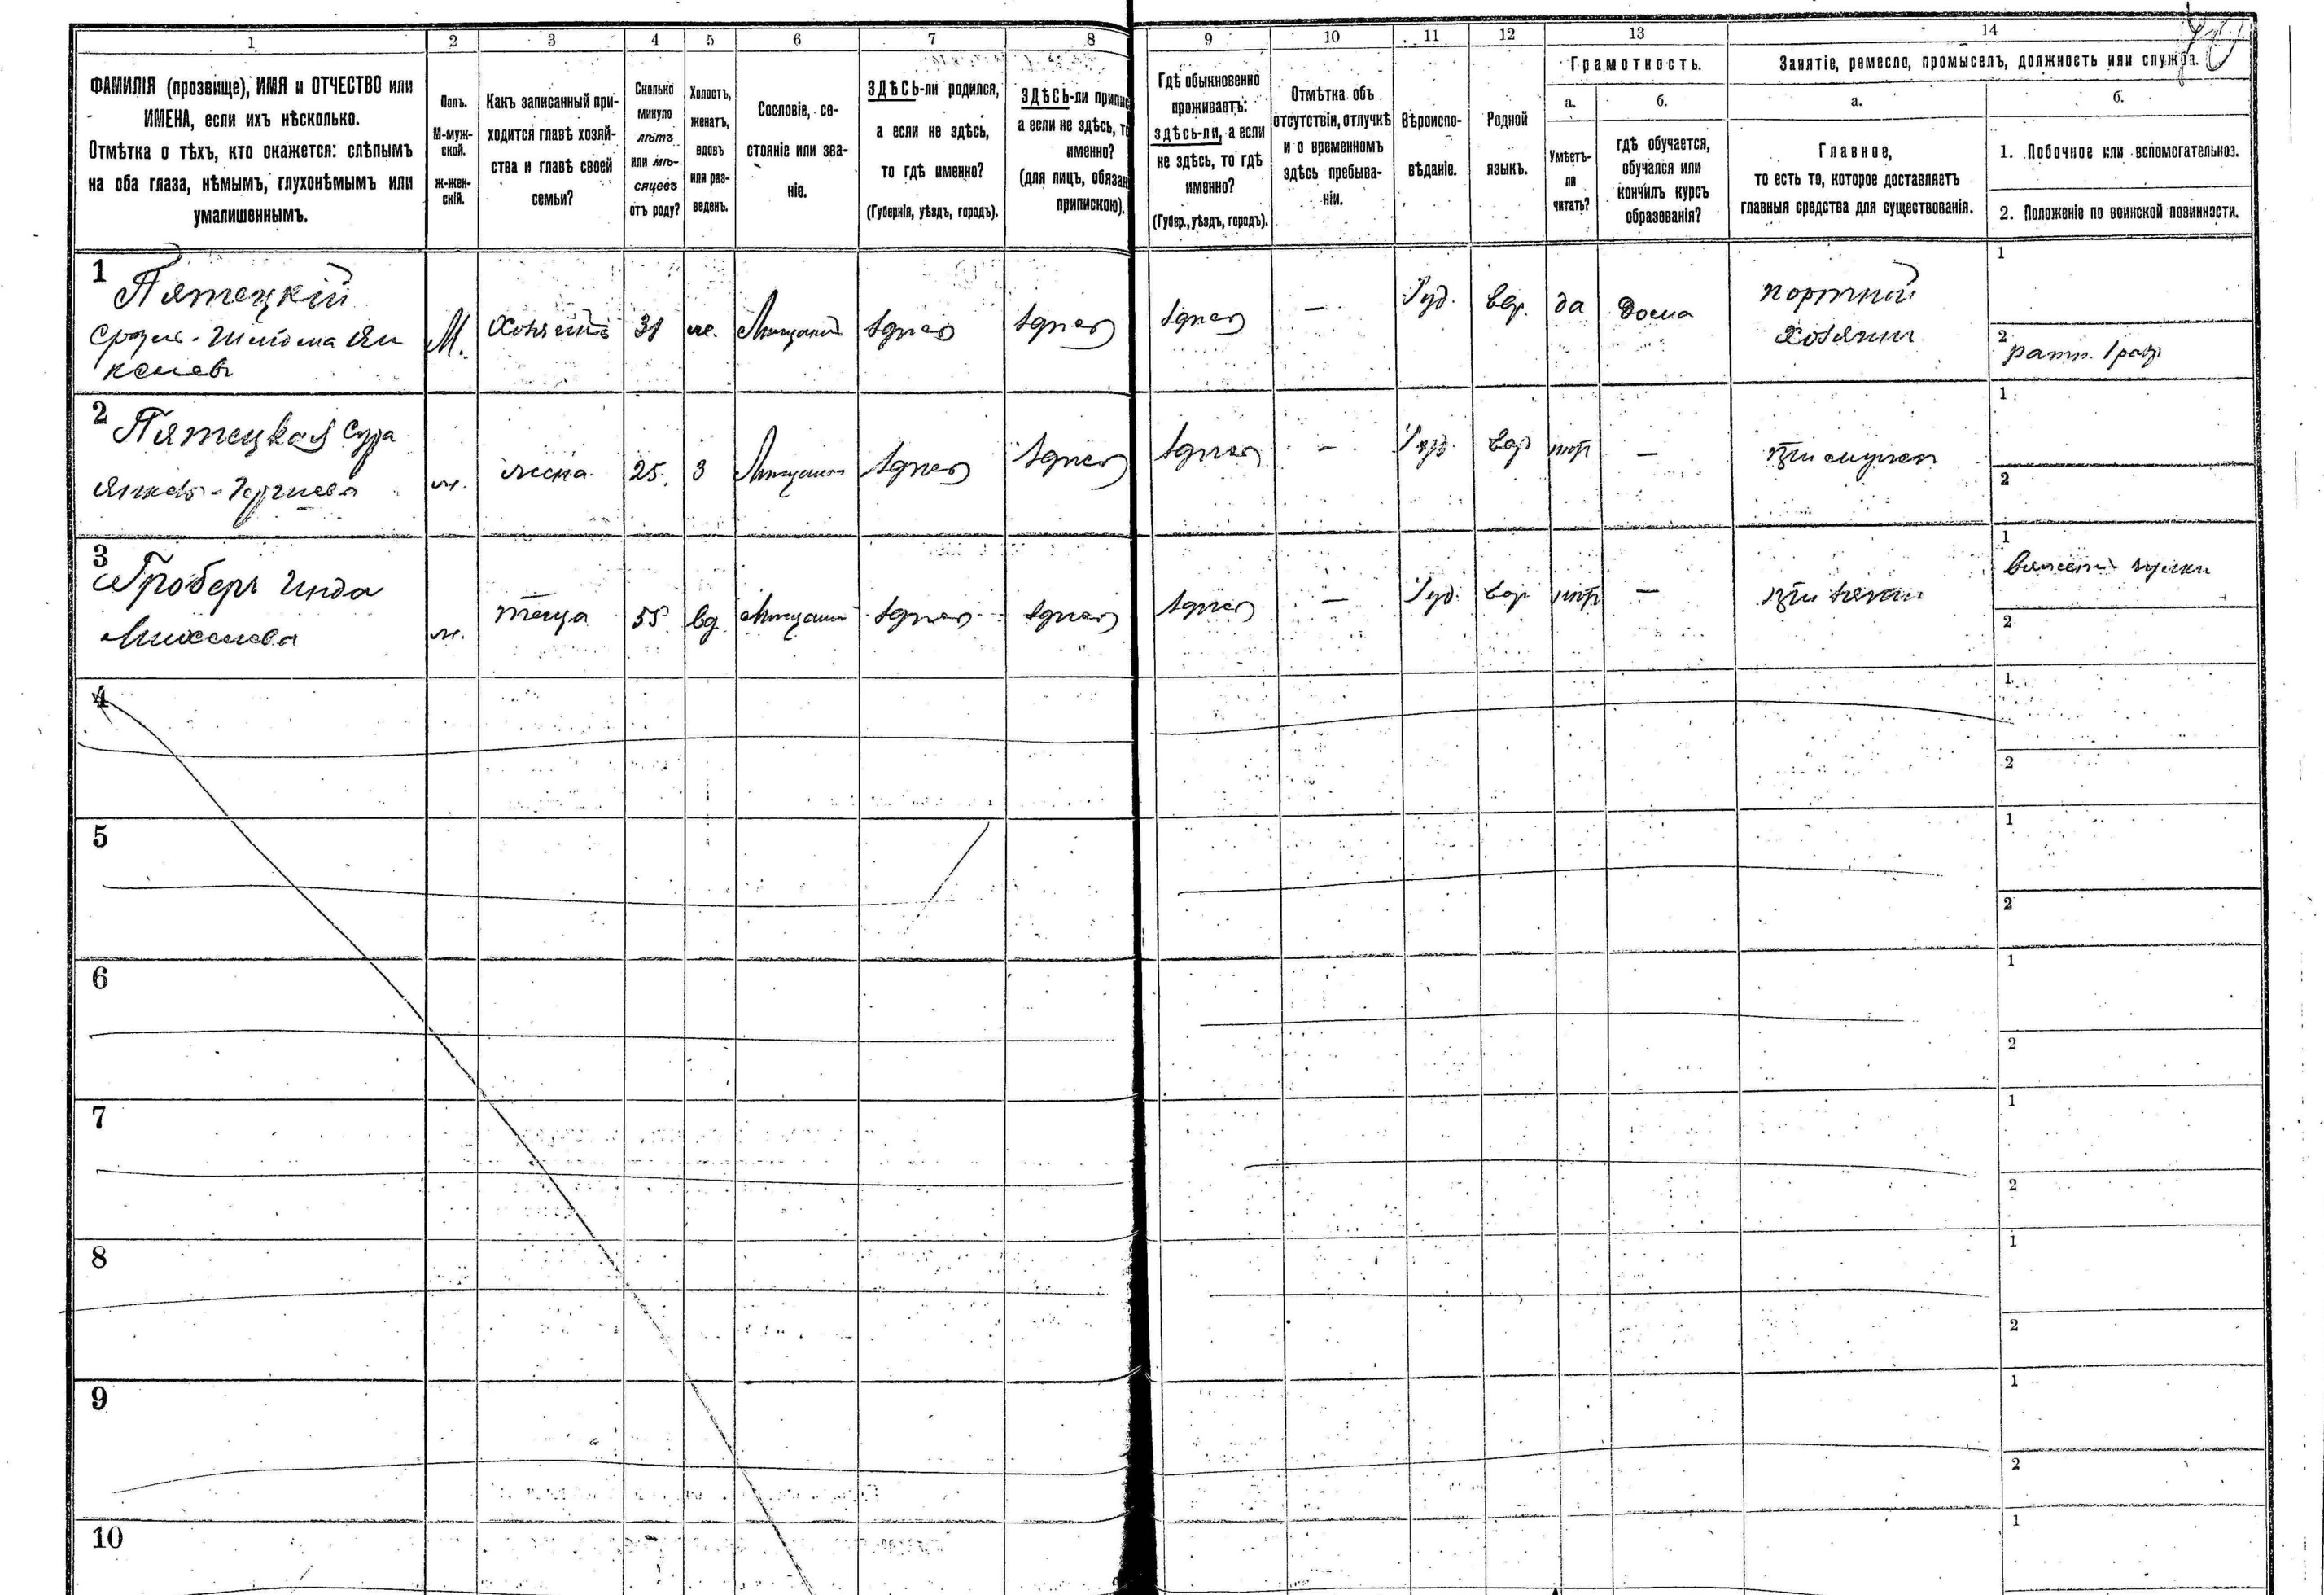 1 2 3 4 5 6 7 8 9 10 11 12 13 14
ФАМИЛІЯ (прозвище), ИМЯ и ОТЧЕСТВО или
ИМЕНА, если ихъ нѣсколько.
Отмѣтка о тѣхъ, кто окажется: слѣпымъ
на оба глаза, нѣмымъ, глухонѣмымъ или
умалишеннымъ.
Полъ.
М-муж-
ской.
ж-жен-
скій.
Какъ записанный при-
ходится главѣ хозяй-
ства и главѣ своей
семьи?
Сколько
минуло
лѣтъ
или мѣ-
сяцевъ
отъ роду?
Холостъ,
женатъ,
вдовъ
или раз-
веденъ.
Сословіе, со-
стояніе или зва-
ніе.
ЗДѢСЬ-ли родился,
а если не здѣсь,
то гдѣ именно?
(Губернія, уѣздъ, городъ).
ЗДѢСЬ-ли припис
а если не здѣсь, то
именно?
(для лицъ, обязан
припискою).
Гдѣ обыкновенно
проживаетъ:
здѣсь-ли, а если
не здѣсь, то гдѣ
именно?
(Губер., уѣздъ, городъ).
Отмѣтка объ
отсутствіи, отлучкѣ
и о временномъ
здѣсь пребыва-
ніи.
Вѣроиспо-
вѣданіе.
Родной
языкъ.
Грамотность.
а.
Умѣетъ-
ли
читать?
б.
гдѣ обучается,
обучался или
кончилъ курсъ
образованія?
Занятіе, ремесло, промыселъ, должность или служба.
а.
Главное,
то есть то, которое доставляетъ
главныя средства для существованія.
б.
1. Побочное или вспомогательное.
2. Положеніе по воинской повинности.
1
Пятецкій
М. Хозяинъ 31 же. Мѣщанинъ здѣсь здѣсь здѣсь — Іуд. Евр. да Дома
портной
хозяинъ
1
2 ратн. 1 раз
2
Пятецкая Сура
ж. жена 25 З Мѣщанин здѣсь здѣсь здѣсь — Іуд. Евр нѣт — при мужѣ
1
2
3
Гроберъ Инда
Михелева
ж. теща 55 вд Мѣщани здѣсь здѣсь здѣсь — Іуд. Евр нѣт — при зятѣ
1 вяжетъ чулки
2
4
1
2
5
1
2
6
1
2
7
1
2
8
1
2
9
1
2
10
1